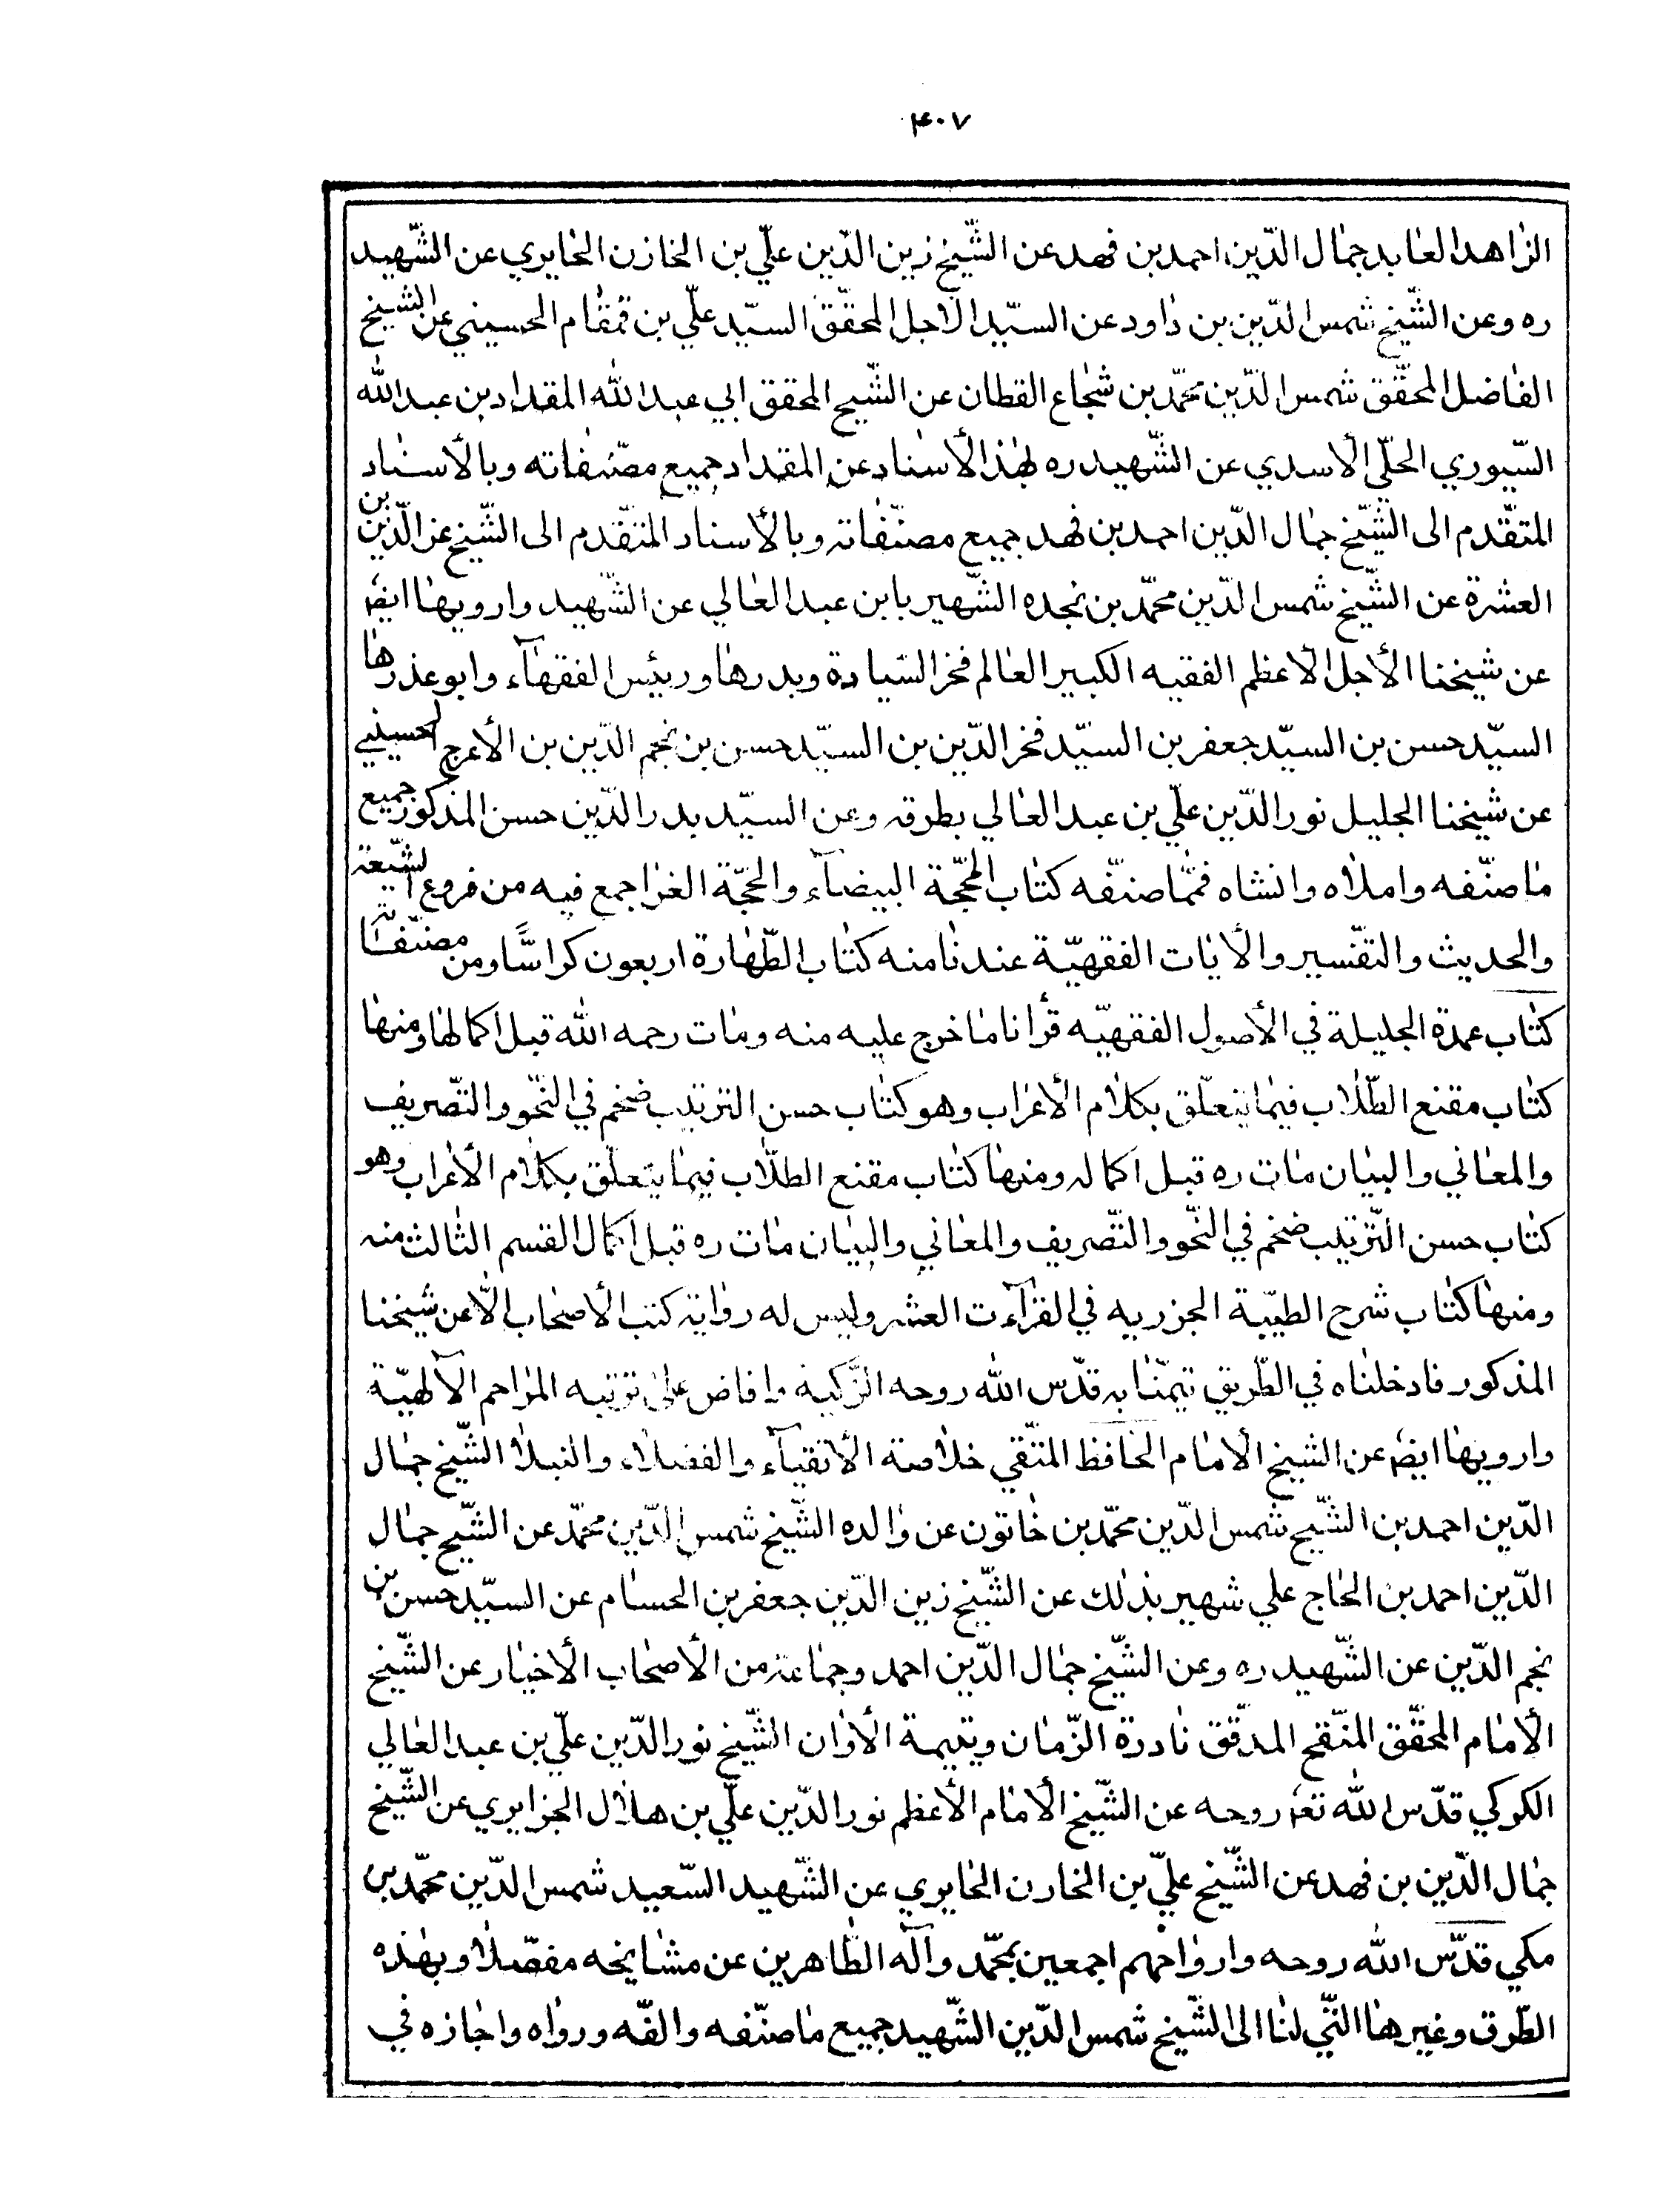 ۴۰۷
الزاهد العابد جمال الدّين احمد بن فهد عن الشّيخ زين الدّين علّي بن الخازن الحايري عن الشّهيد
ره وعن الشّيخ شمس الدّين بن داود عن السيّد الاجل المحقّق السيّد علّي بن قمقام الحسيني عن الشيخ
الفاضل المحقّق شمس الدّين محمّد بن شجاع القطان عن الشّيخ المحقق ابي عبد الله المقداد بن عبد الله
السّيوري الحلّي الأسدي عن الشّهيد ره بهذ الأسناد عن المقداد جميع مصنّفاته وبالأسناد
المتقّدم الى الشّيخ جمال الدّين احمد بن فهد جميع مصنّفاته وبالأسناد المتقّدم الى الشّيخ عز الدّين بن
العشرة عن الشّيخ شمس الدّين محمّد بن نجده الشّهير بابن عبد العالي عن الشّهيد وارويها ايضً
عن شيخنا الأجل الأعظم الفقيه الكبير العالم فخر السّيادة وبدرها وربئيس الفقهآء وابو عذرها
السيّد حسن بن السيّد جعفر بن السيّد فخر الدّين بن السيّد حسن بن نجم الدّين بن الأعرج الحسيني
عن شيخنا الجليل نور الدّين علّي بن عبد العالي بطرقه وعن السيّد بدر الدّين حسن المذكور جميع
ما صنّفه واملاه وانشاه فممّا صنّفه كتاب المحجّة البيضآء والحجّة الغرا جمع فيه من فروع الشّيعة
والحديث والتفّسير والأيات الفقهيّة عندنا منه كتاب الطّهارة اربعون كراسًّا ومن مصنّفاته
كتاب عمدة الجليلة في الأصول الفقهيّه قرأنا ما خرج عليه منه ومات رحمه الله قبل اكمالها ومنها
كتاب مقنع الطّلاب فيما يتعلّق بكلام الأعراب وهو كتاب حسن الترتيب ضخم في النّحو والتّصريف
والمعاني والبيان مات ره قبل اكماله ومنها كتاب مقنع الطلّاب فيما يتعلّق بكلام الأعراب وهو
كتاب حسن التّرتيب ضخم في النّحو والتّصريف والمعاني والبيان مات ره قبل اكمال القسم الثالث منه
ومنها كتاب شرح الطيّبة الجزريه في القرآءت العشر وليس له رواية كتب الأصحاب الّا عن شيخنا
المذكور فادخلناه في الطّريق تيمّنا به قدّس الله روحه الزّكية وافاض على تربته المراحم الآلهيّة
وارويها ايضً عن الشيخ الأمام الحافظ المتّقي خلاصة الأتقيآء والفضلاء والنبلاْ الشّيخ جمال
الدّين احمد بن الشّيخ شمس الدّين محمّد بن خاتون عن والده الشّيخ شمس الدّين محمّد عن الشّيخ جمال
الدّين احمد بن الحاج علي شهير بذلك عن الشّيخ زين الدّين جعفر بن الحسام عن السيّد حسن بن
نجم الدّين عن الشّهيد ره وعن الشّيخ جمال الدّين احمد وجماعة من الأصحاب الأخيار عن الشّيخ
الأمام المحقّق المنّقح المدقّق نادرة الزّمان ويتيمة الأوان الشّيخ نور الدّين علّي بن عبد العالي
الكركي قدّس الله تعٓ روحه عن الشّيخ الأمام الأعظم نور الدّين علّي بن هلال الجزايري عن الشّيخ
جمال الدّين بن فهد عن الشّيخ علّي بن الخازن الحايري عن الشّهيد السّعيد شمس الدّين محمّد بن
مكي قدّس الله روحه وارواحهم اجمعين بمحمّد وآله الطّاهرين عن مشايخه مفصّلا وبهذه
الطّرق وغيرها التّي لنا الى الشّيخ شمس الدّين الشّهيد جميع ما صنّفه والفّه ورواه واجازه في